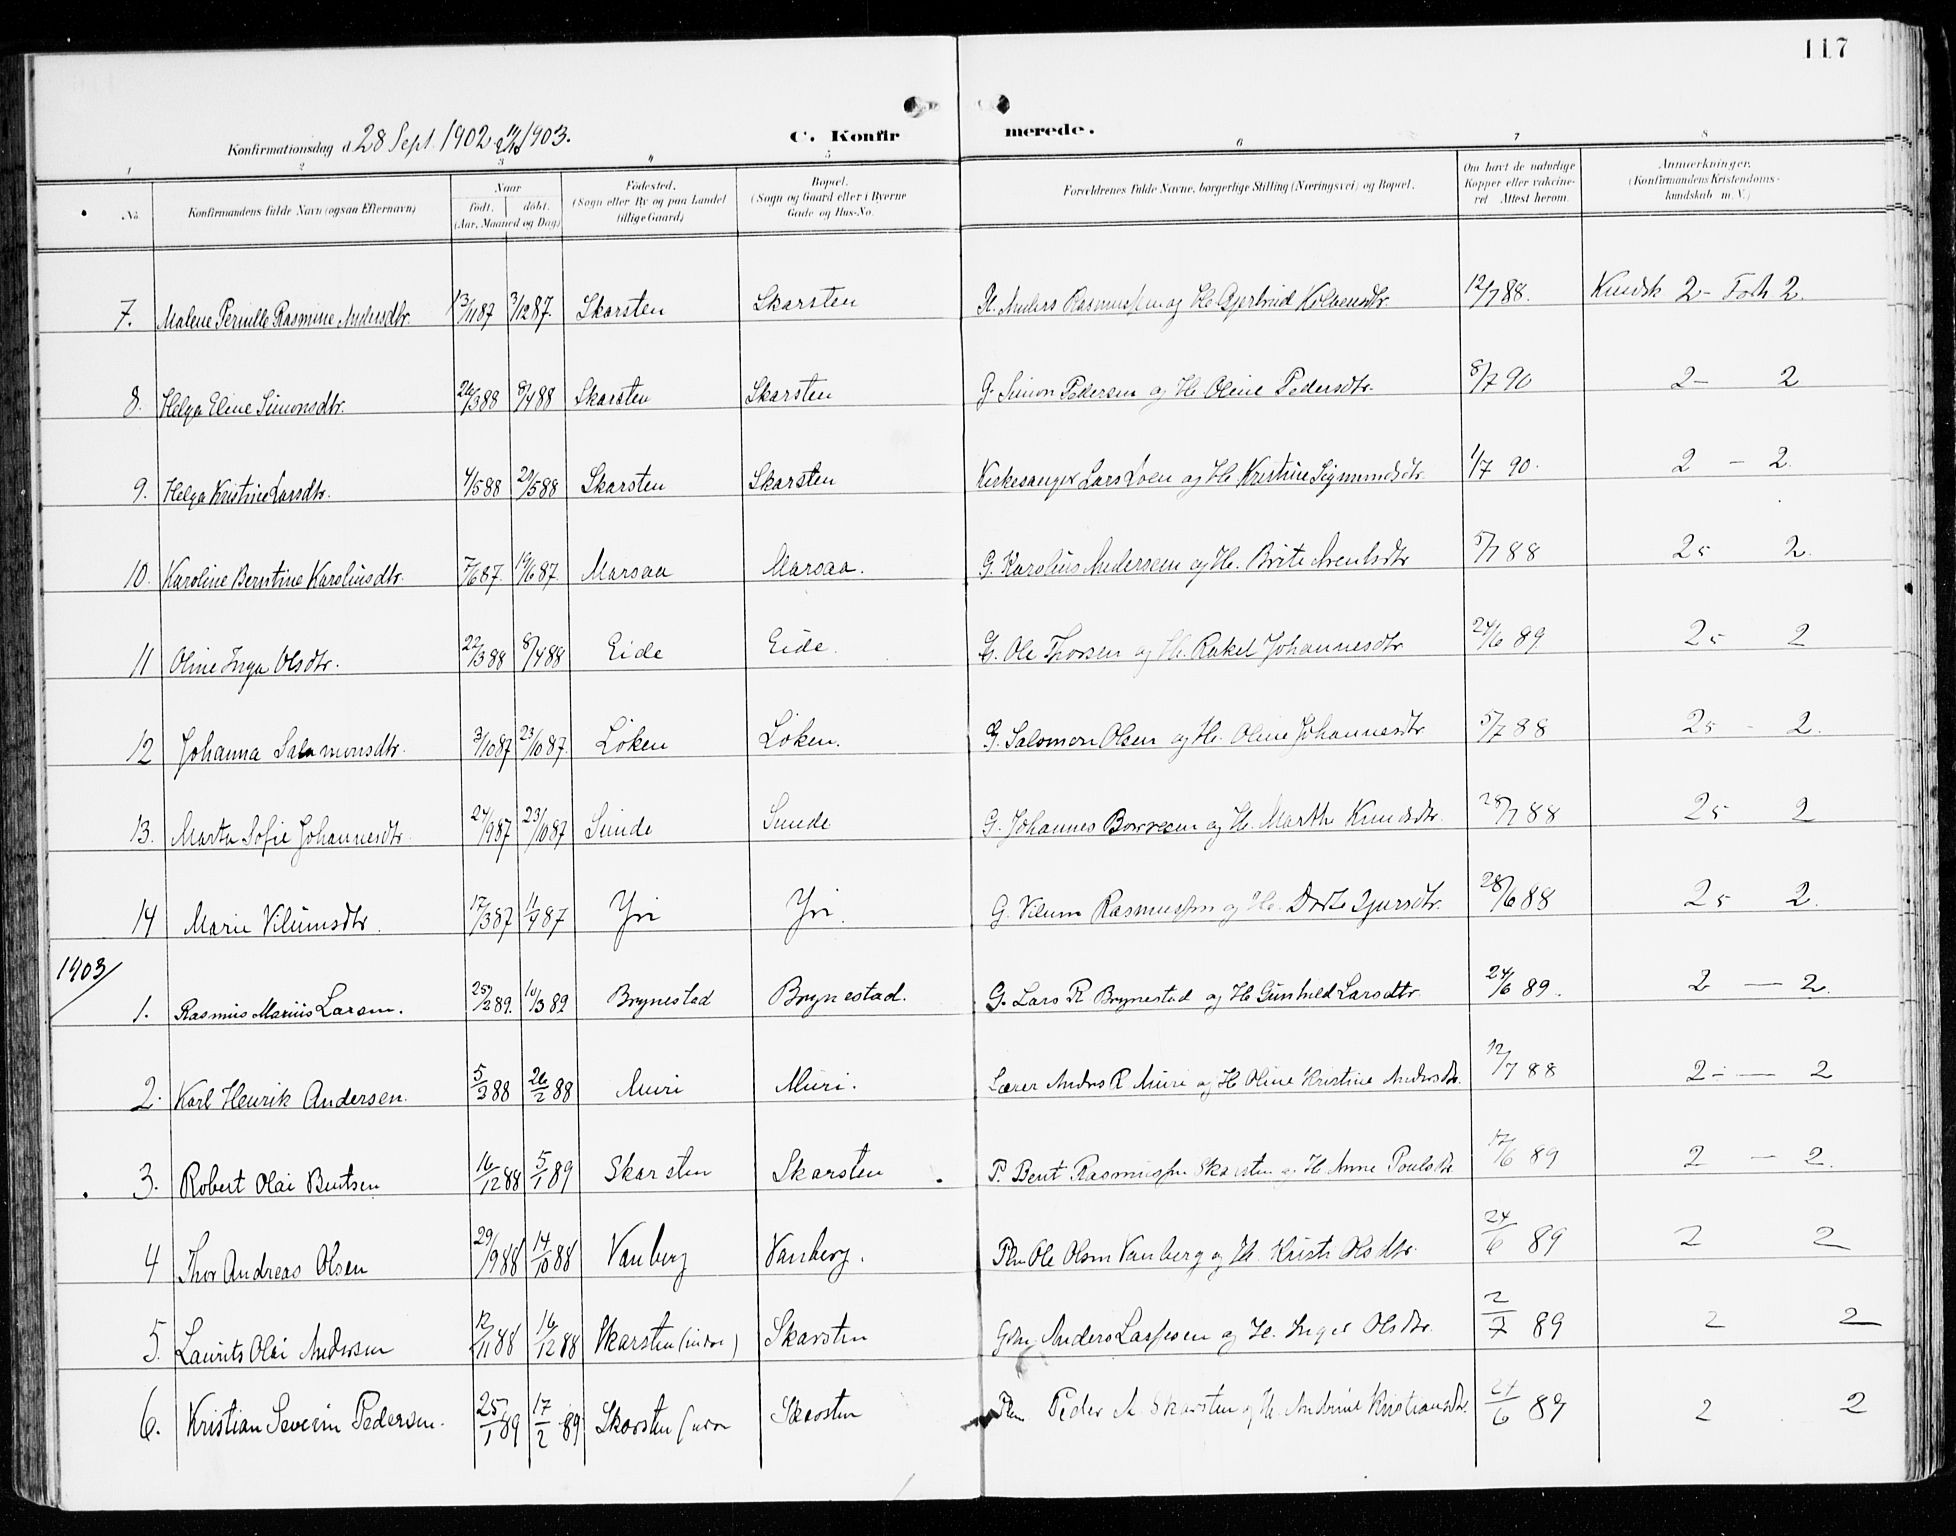 117
Konfirmationsdag d. 28 Sept. 1902 1903.
C. Konfirmerede.
1 2 3 4 5 6 7 8
No. Konfirmandens fulde Navn (ogsaa Efternavn) Naar født. døbt. (Aar, Maaned og Dag) Fødested. (Sogn eller By og paa Landet tillige Gaard) Bopæl. (Sogn og Gaard eller i Byerne Gade og Hus-No. Forældrenes fulde Navne, borgerlige Stilling (Næringsvei) og Bopæl. Om havt de naturlige Kopper eller vakcineret Attest herom. Anmærkninger. (Konfirmandens Kristendomskundskab m. V.)
7. Malene Pernille Rasmine Andersdtr. 13/11 87 3/12 87. Skarsten Skarsten Anders Rasmussen og H. Gjertrud 12/7 88. Kundsk 2 - Forh 2
8. Helga Eline Simonsdtr. 26/3 88 8/4 88 Skarsten Skarsten G. Simon Pedersen og H. Oline Pedersdtr. 8/7 90 2 - 2
9. Helga Kristine Larsdtr. 4/5 88 20/5 88 Skarsten Skarsten Kirkesanger Lars Loen og H. Kristine Sigmundsdtr. 1/7 90. 2 - 2.
10. Karoline Berntine Karoliusdtr. 7/6 87. 19/6 87 Marsaa Marsaa. G. Karolius Andersen og H. Brite Arentsdtr 5/7 88 25 2.
11 Oline Inga Olsdtr. 22/3 88 8/4 88 Eide Eide. G. Ole Thorsen og H. Rakel Johannesdtr 24/6 89 25 2
12 Johanna Salamonsdtr. 3/10 87 23/10 87. Löken Löken. G. Salomon Olsen og H. Oline Johannesdtr 5/7 88 25 - 2.
13. Marta Sofie Johannesdtr. 24/9 87 23/10 87 Sunde Sunde G. Johannes og H. Marthe Knudsdtr. 28/7 88 25 2
14 Marie Vilumsdtr. 17/3 87 11/4 87 Yri Yri. G. Vilum Rasmussen og H. Dorte 28/6 88 25 2.
1903/
1. Rasmus Marius Larsen. 25/2 89. 10/3 89 Brynestad Brynestad. G. Lars R Brynestad og H. Gunhild Larsdtr. 24/6 89. 2 — 2.
2. Karl Henrik Andersen. 5/2 88 26/2 88 Muri Muri. Lærer Anders R Muri og H. Oline Kristine Andersdtr. 12/7 88 2 — 2
3. Robert Olai Bentsen 16/12 88 5/1 89 Skarsten Skarsten P. Bent Rasmussen Skarsten og H. Anne Poulsdtr 17/6 89 2 — 2.
4 Thor Andreas Olsen 29/9 88 14/10 88 Vanberg Vanberg. Ole Olsen Vanberg og H. Kristi Olsdtr. 24/6 89 2 2
5. Laurits Olai Andersen 12/11 88 16/12 88 Skarsten (indre) Skarsten Gdm. Anders Lassesen og H. Inger Olsdtr. 2/7 89 2 2
6. Kristian Severin Pedersen. 25/1 89 17/2 89 Skarsten Skarsten Peder A. Skarsten og H. Andrine Kristiansdtr. 24/6 89 2 2